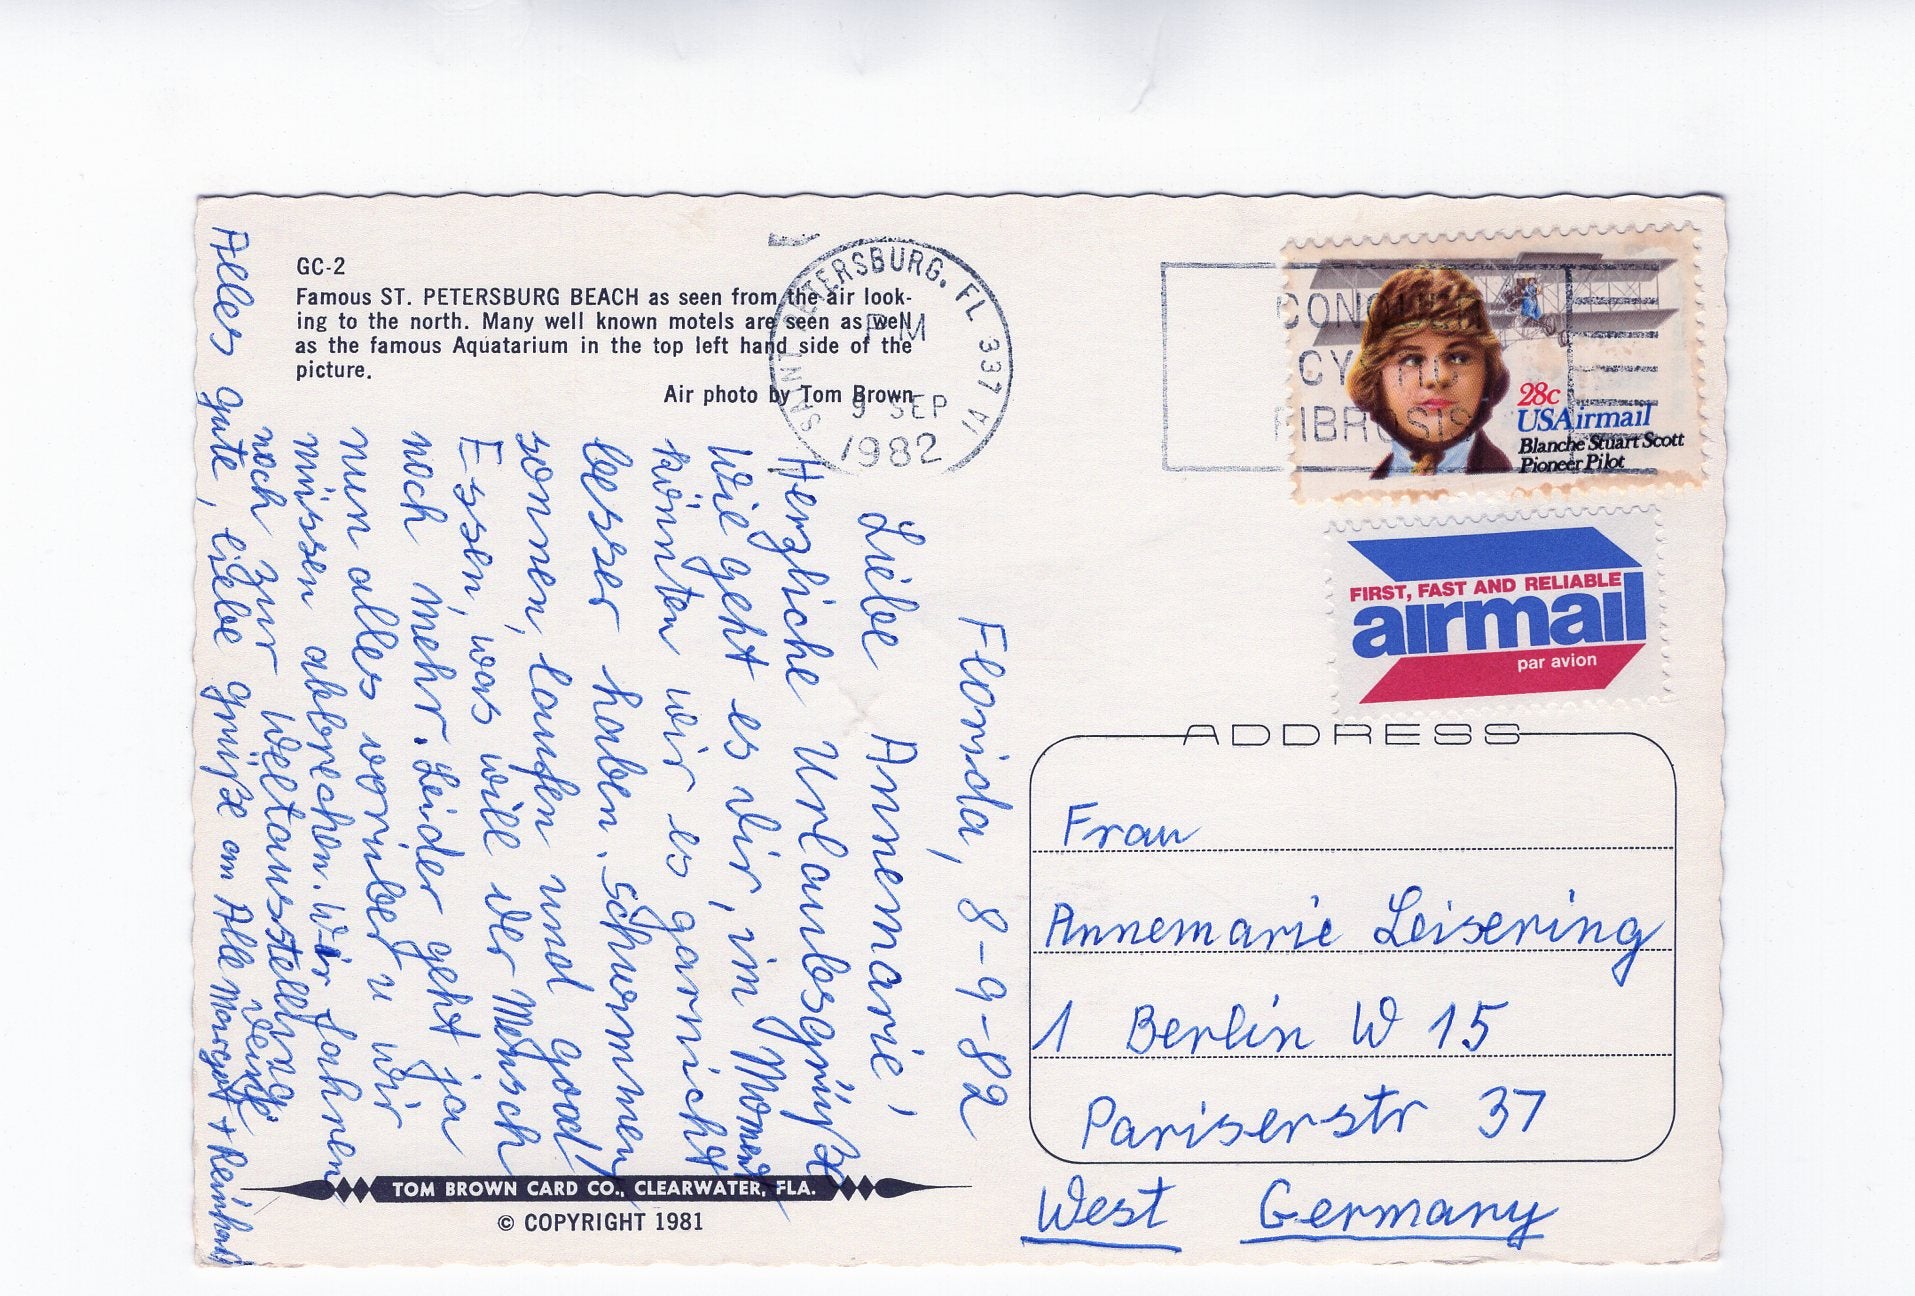 GC-2
Famous ST. PETERSBURG BEACH as seen from the air look-
ing to the north. Many well known motels are seen as well
as the famous Aquatarium in the top left hand side of the
picture.
Air photo by Tom Brown
SAINT PETERSBURG, FL 337
PM
9 SEP
1982
CONQUER
CYSTIC
FIBROSIS
28c
USAirmail
Blanche Stuart Scott
Pioneer Pilot
FIRST, FAST AND RELIABLE
airmail
par avion
Florida, 8-9-82
Liebe Annemarie,
Herzliche Urlaubsgrüße
Wie geht es dir, im Moment
könnten wir es garnicht
besser haben. Schwimmen,
sonnen, laufen und good
Essen, was will der Mensch
noch mehr. Leider geht ja
nun alles vorüber u wir
müssen abbrechen. Wir fahren
noch zur Weltausstellung.
Alles gute, liebe grüße an Alle Margot + Reinhard
ADDRESS
Frau
Annemarie Leisering
1 Berlin W 15
Pariserstr 37
West Germany
TOM BROWN CARD CO., CLEARWATER, FLA.
© COPYRIGHT 1981